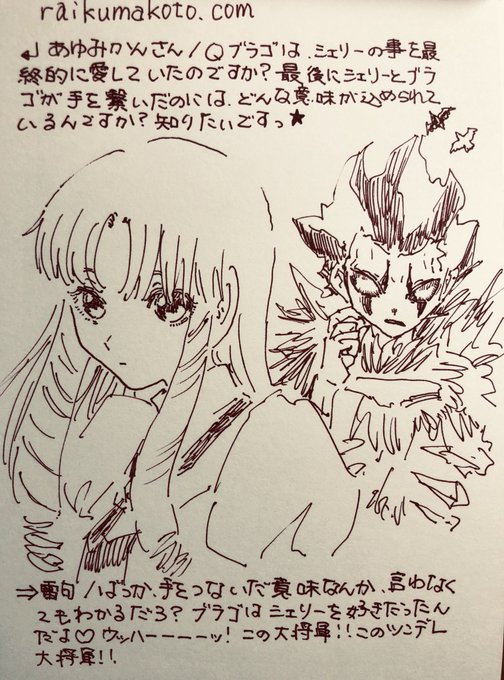 raikumakoto.com
↲あゆみかんさん/Qブラゴは、シェリーの事を最
終的に愛していたのですか?最後にシェリーとブラ
ゴが手を繋いだのには、どんな意味が込められて
いるんですか?知りたいですっ★
⇒雷句/ばっか、手をつないだ意味なんか、言わなく
てもわかるだろ?ブラゴはシェリーを好きだったん
だよ♡ウッハーーーーッ!この大将軍!!このツンデレ
大将軍!!